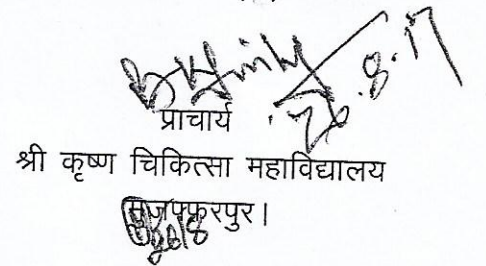 26.8.17
प्राचार्य
श्री कृष्ण चिकित्सा महाविद्यालय
मुजफ्फरपुर।